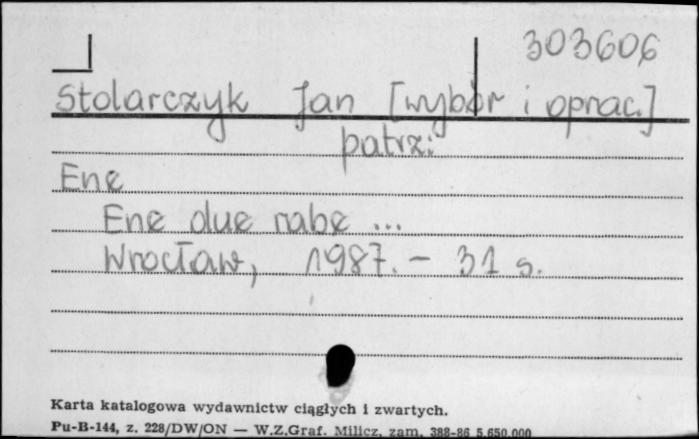 303606
Stolarczyk Jan [wybór i oprac.]
patrz:
Ene
Ene due rabe ...
Wrocław, 1987. - 31 s.
Karta katalogowa wydawnictw ciągłych i zwartych.
Pu-B-144, z. 228/DW/ON — W.Z.Graf. Milicz, zam. 388-86 5.650.000